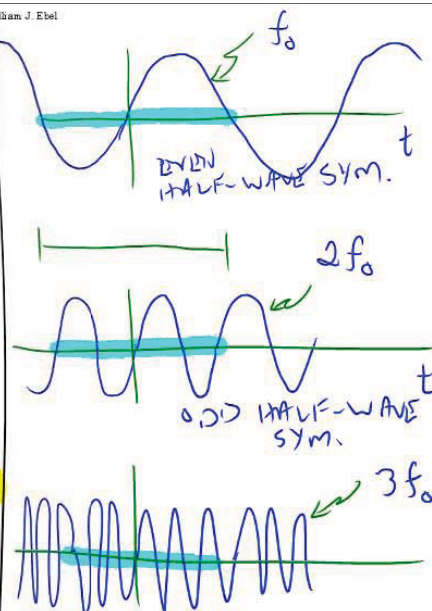 lliam J. Ebel
f₀
t
EVEN
HALF-WAVE SYM.
2f₀
t
ODD HALF-WAVE
SYM.
3f₀